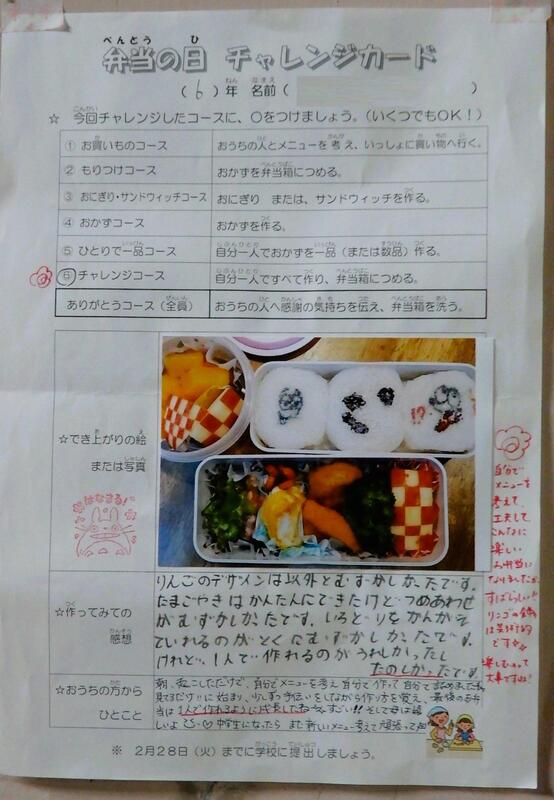 弁当の日 チャレンジカード
(6)年 名前( )
☆ 今回チャレンジしたコースに、○をつけましょう。(いくつでもOK!)
① お買いものコース おうちの人とメニューを考え、いっしょに買い物へ行く。
② もりつけコース おかずを弁当箱につめる。
③ おにぎり・サンドウィッチコース おにぎり または、サンドウィッチを作る。
④ おかずコース おかずを作る。
⑤ ひとりで一品コース 自分一人でおかずを一品(または数品)作る。
⑥ チャレンジコース 自分一人ですべて作り、弁当箱につめる。
ありがとうコース(全員) おうちの人へ感謝の気持ちを伝え、弁当箱を洗う。
☆でき上がりの絵
または写真
はなまる!
自分で
メニューを
考えて
工夫して
こんなに
楽しい
お弁当に
すばらしい
リンゴの
は芸術的
です
☆作ってみての
感想
りんごのデザインは以外とむずかしかったです。
たまごやきはかんたんにできたけどつめあわせ
がむずかしかったです。いろどりをかんがえ
ていれるのがとくにむずかしかったです。
けれど、1人で作れるのがうれしかったし
たのしかったです。
☆おうちの方から
ひとこと
朝、起こしただけで、自分でメニューを考え自分で作って自分で詰めました
に始まり、少しずつ手伝いをしながら作り方を覚え、最後のお弁
当は1人で作れるように成長したね すごい!! そして母は嬉
しいよ 中学生になったら また新しいメニュー考えて頑張って
※ 2月28日(火)までに学校に提出しましょう。